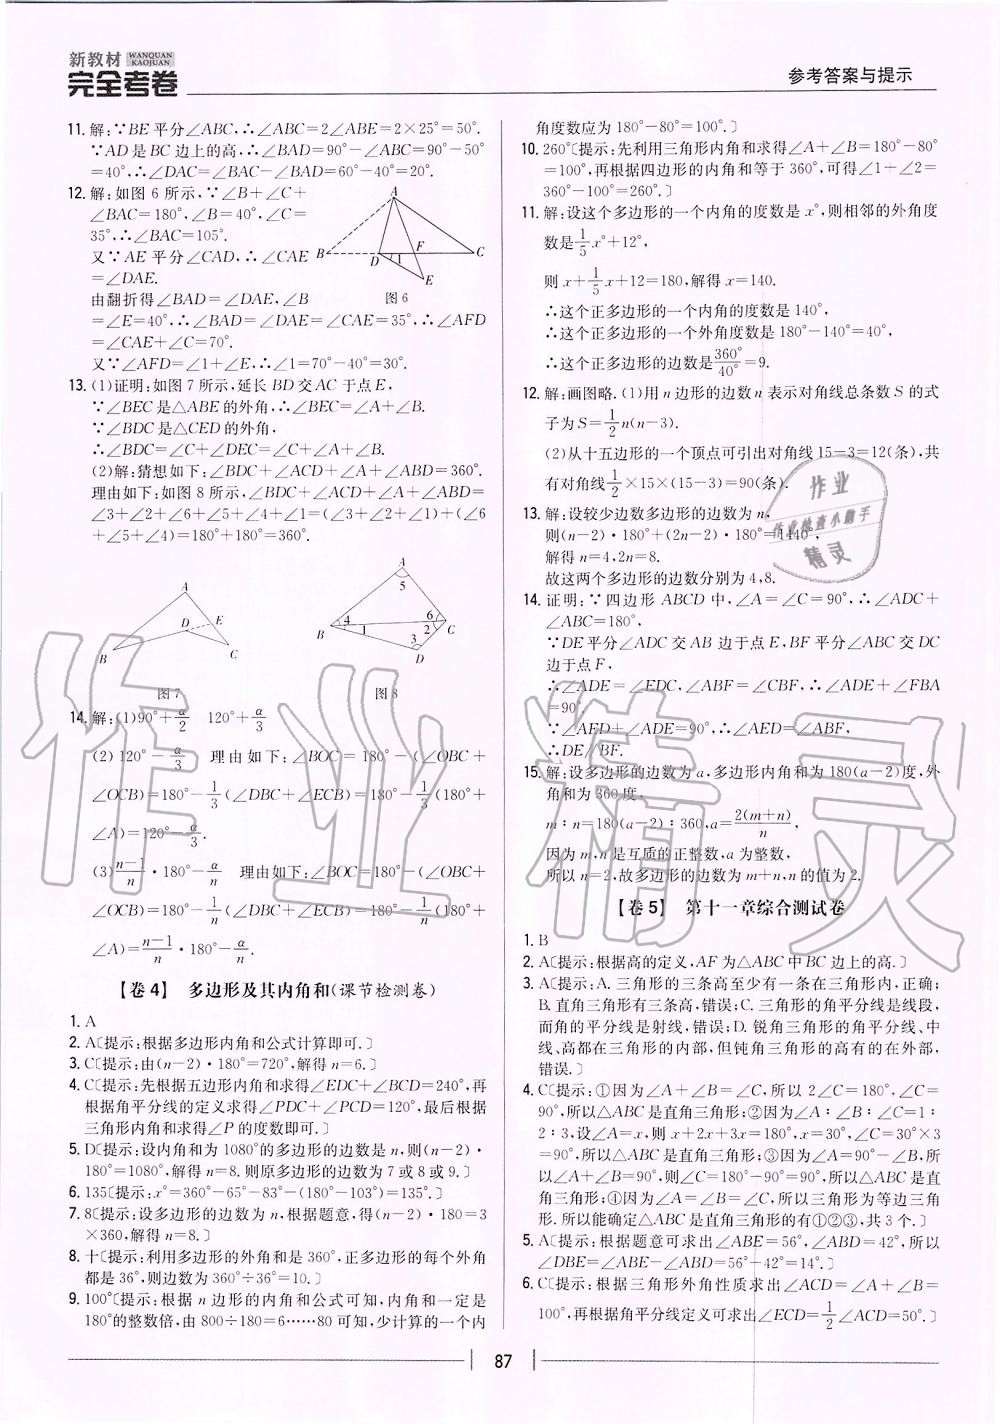 新教材 WANQUAN KAOJUAN
完全考卷
参考答案与提示
11. 解:∵BE平分∠ABC,∴∠ABC=2∠ABE=2×25°=50°.
∵AD是BC边上的高,∴∠BAD=90°-∠ABC=90°-50°
=40°,∴∠DAC=∠BAC-∠BAD=60°-40°=20°.
12. 解:如图6所示,∵∠B+∠C+
∠BAC=180°,∠B=40°,∠C=
35°,∴∠BAC=105°.
又∵AE平分∠CAD,∴∠CAE
=∠DAE.
由翻折得∠BAD=∠DAE,∠B
=∠E=40°,∴∠BAD=∠DAE=∠CAE=35°,∴∠AFD
=∠CAE+∠C=70°.
又∵∠AFD=∠1+∠E,∴∠1=70°-40°=30°.
A
B
D
1
F
C
E
图6
13. (1)证明:如图7所示,延长BD交AC于点E,
∵∠BEC是△ABE的外角,∴∠BEC=∠A+∠B.
∵∠BDC是△CED的外角,
∴∠BDC=∠C+∠DEC=∠C+∠A+∠B.
(2)解:猜想如下:∠BDC+∠ACD+∠A+∠ABD=360°.
理由如下:如图8所示,∠BDC+∠ACD+∠A+∠ABD=
∠3+∠2+∠6+∠5+∠4+∠1=(∠3+∠2+∠1)+(∠6
+∠5+∠4)=180°+180°=360°.
A
D
E
B
C
图7
A
5
B
4
1
6
2
C
3
D
图8
14. 解:(1)90°+α/2 120°+α/3
(2)120°-α/3 理由如下:∠BOC=180°-(∠OBC+
∠OCB)=180°-1/3(∠DBC+∠ECB)=180°-1/3(180°+
∠A)=120°-α/3.
(3)n-1/n·180°-α/n 理由如下:∠BOC=180°-(∠OBC+
∠OCB)=180°-1/n(∠DBC+∠ECB)=180°-1/n(180°+
∠A)=n-1/n·180°-α/n.
【卷4】 多边形及其内角和(课节检测卷)
1. A
2. A〔提示:根据多边形内角和公式计算即可.〕
3. C〔提示:由(n-2)·180°=720°,解得n=6.〕
4. C〔提示:先根据五边形内角和求得∠EDC+∠BCD=240°,再
根据角平分线的定义求得∠PDC+∠PCD=120°,最后根据
三角形内角和求得∠P的度数即可.〕
5. D〔提示:设内角和为1080°的多边形的边数是n,则(n-2)·
180°=1080°,解得n=8.则原多边形的边数为7或8或9.〕
6. 135〔提示:x°=360°-65°-83°-(180°-103°)=135°.〕
7. 8〔提示:设多边形的边数为n,根据题意,得(n-2)·180=3
×360,解得n=8.〕
8. 十〔提示:利用多边形的外角和是360°.正多边形的每个外角
都是36°,则边数为360°÷36°=10.〕
9. 100°〔提示:根据n边形的内角和公式可知,内角和一定是
180°的整数倍,由800÷180=6……80可知,少计算的一个内
角度数应为180°-80°=100°.〕
10. 260°〔提示:先利用三角形内角和求得∠A+∠B=180°-80°
=100°,再根据四边形的内角和等于360°,可得∠1+∠2=
360°-100°=260°.〕
11. 解:设这个多边形的一个内角的度数是x°,则相邻的外角度
数是1/5x°+12°,
则x+1/5x+12=180,解得x=140.
∴这个正多边形的一个内角的度数是140°,
∴这个正多边形的一个外角度数是180°-140°=40°,
∴这个正多边形的边数是360°/40°=9.
12. 解:画图略.(1)用n边形的边数n表示对角线总条数S的式
子为S=1/2n(n-3).
(2)从十五边形的一个顶点可引出对角线15-3=12(条),共
有对角线1/2×15×(15-3)=90(条).
13. 解:设较少边数多边形的边数为n,
则(n-2)·180°+(2n-2)·180°=1440°,
解得n=4,2n=8.
故这两个多边形的边数分别为4,8.
14. 证明:∵四边形ABCD中,∠A=∠C=90°,∴∠ADC+
∠ABC=180°,
∵DE平分∠ADC交AB边于点E,BF平分∠ABC交DC
边于点F,
∴∠ADE=∠EDC,∠ABF=∠CBF,∴∠ADE+∠FBA
=90°.
∵∠AED+∠ADE=90°,∴∠AED=∠ABF,
∴DE∥BF.
15. 解:设多边形的边数为a,多边形内角和为180(a-2)度,外
角和为360度,
m∶n=180(a-2)∶360,a=2(m+n)/n,
因为m,n是互质的正整数,a为整数,
所以n=2,故多边形的边数为m+n,n的值为2.
【卷5】 第十一章综合测试卷
1. B
2. A〔提示:根据高的定义,AF为△ABC中BC边上的高.〕
3. A〔提示:A.三角形的三条高至少有一条在三角形内,正确;
B.直角三角形有三条高,错误;C.三角形的角平分线是线段,
而角的平分线是射线,错误;D.锐角三角形的角平分线、中
线、高都在三角形的内部,但钝角三角形的高有的在外部,
错误.〕
4. C〔提示:①因为∠A+∠B=∠C,所以2∠C=180°,∠C=
90°,所以△ABC是直角三角形;②因为∠A∶∠B∶∠C=1∶
2∶3,设∠A=x,则x+2x+3x=180°,x=30°,∠C=30°×3
=90°,所以△ABC是直角三角形;③因为∠A=90°-∠B,所
以∠A+∠B=90°,则∠C=180°-90°=90°,所以△ABC是直
角三角形;④因为∠A=∠B=∠C,所以三角形为等边三角
形.所以能确定△ABC是直角三角形的有①②③,共3个.〕
5. A〔提示:根据题意可求出∠ABE=56°,∠ABD=42°,所以
∠DBE=∠ABE-∠ABD=56°-42°=14°.〕
6. C〔提示:根据三角形外角性质求出∠ACD=∠A+∠B=
100°,再根据角平分线定义可求出∠ECD=1/2∠ACD=50°.〕
87
作业
作业检查小助手
精灵
作业精灵